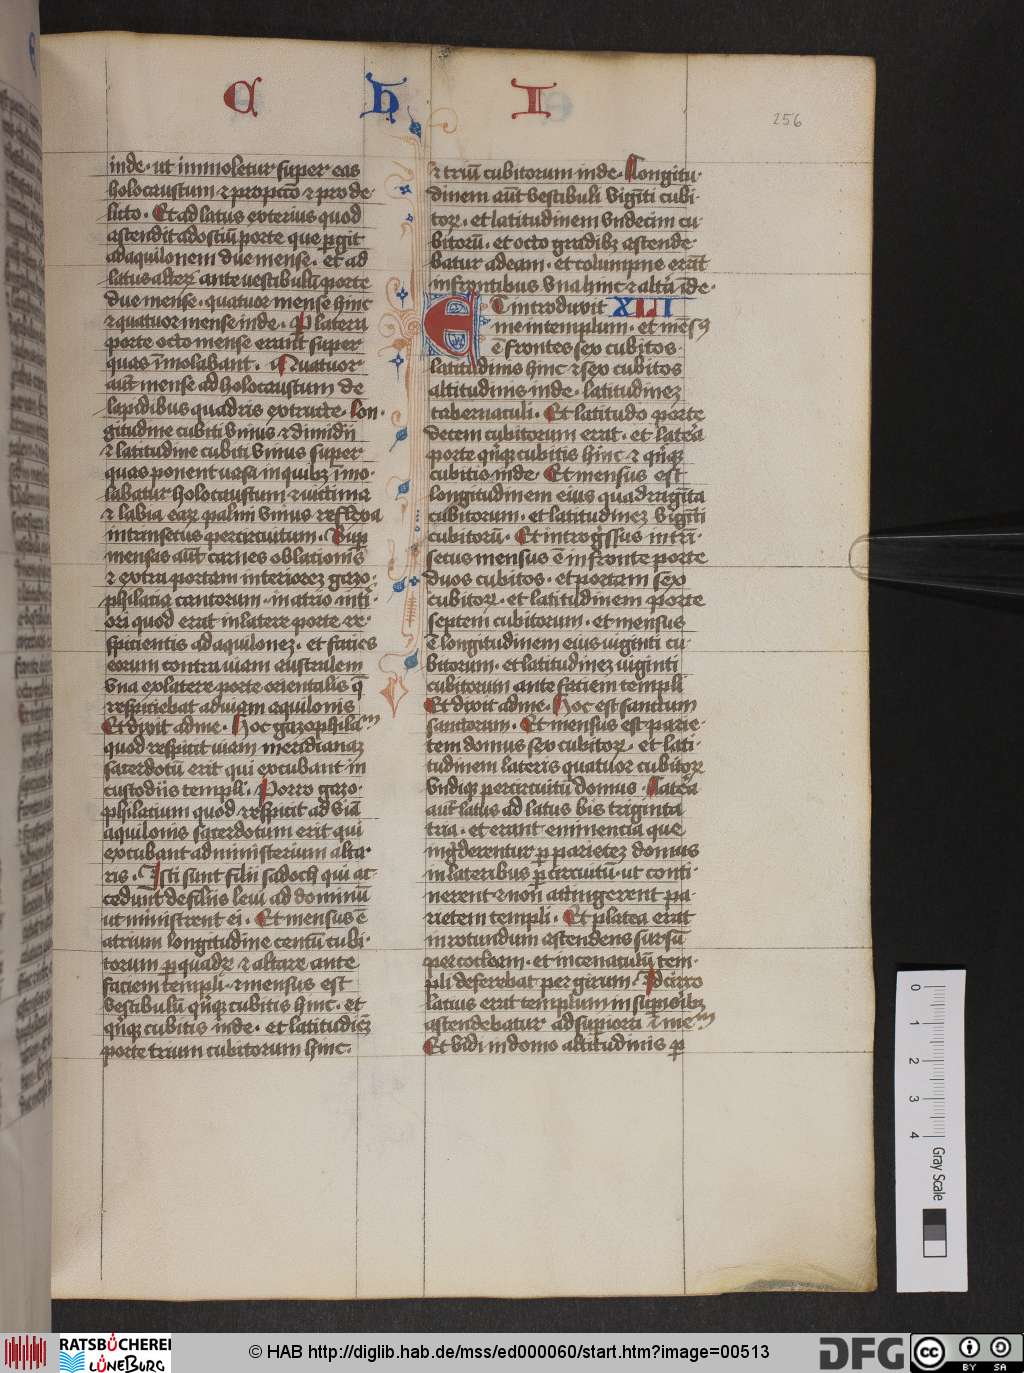 C h I
256
inde · ut immoletur super eas
holocaustum ⁊ pro pctō ⁊ pro de
licto · Et ad latus exterius quod
ascendit ad ostiū porte que ꝑgit
ad aquilonem due mense · et ad
latus alterꝝ ante vestibulū porte
due mense · quatuor mense hinc
⁊ quatuor mense inde · Per latera
porte octo mense erant super
quas īmolabant · Quatuor
aūt mense ad holocaustum de
lapidibus quadris extructe · Lon·
gitudine cubiti vnius ⁊ dimidii
⁊ latitudine cubiti vnius super
quas ponent uasa in quibꝫ īmo·
labatur holocaustum ⁊ uictima
⁊ labia eaꝝ palmi vnius reflexa
intrinsecus per circuitum · Supꝑ
mensas aūt carnes oblationis
⁊ extra portam interiorez gazo·
philatia cantorum · in atrio inti
ori quod erat in latere porte re·
spicientis ad aquilonez · et facies
eorum contra uiam australem
vna ex latere porte orientalis q̄
respiciebat ad uiam aquilonis
Et dixit ad me · Hoc gazophilaᵐ
quod respicit uiam meridianaꝫ
sacerdotū erit qui excubant in
custodiis templi · Porro gazo·
philatium quod respicit ad viā
aquilonis sacerdotum erit qui
excubant ad ministerium alta·
ris · Isti sunt filii sadoch qui ac·
cedunt de filiis leui ad dominū
ut ministrent ei · Et mensus ē
atrium longitudine centū cubi·
torum ꝑ quadꝝ ⁊ altare ante
faciem templi · ⁊ mensus est
vestibulū qnqꝫ cubitis hinc · et
qnqꝫ cubitis inde · et latitudiez
porte trium cubitorum hinc ·
⁊ triū cubitorum inde · Longitu·
dinem aūt vestibuli vigīti cubi·
torꝝ · et latitudinem vndecim cu
bitorū · et octo gradibꝫ ascende·
batur ad eam · et columpne erāt
in frontibus vna hinc ⁊ altā īde ·
Et introduxit XLI
me in templum · et mēsꝰ
ē frontes sex cubitos ·
latitudinis hinc ⁊ sex cubitos
altitudinis inde · latitudinez
tabernaculi · Et latitudo porte
decem cubitorum erat · et latera
porte qnqꝫ cubitis hinc ⁊ qnqꝫ
cubitis inde · Et mensus est
longitudinem eius quadragīta
cubitorum · et latitudinez vigīti
cubitorū · Et introgssus intri·
secus mensus ē in fronte porte
duos cubitos · et portam sex
cubitoꝝ · et latitudinem porte
septem cubitorum · et mensus
ē longitudinem eius uiginti cu·
bitorum · et latitudinez uiginti
cubitorum ante faciem templi
Et dixit ad me · Hoc est sanctum
sanctorum · Et mensus est parie·
tem domus sex cubitoꝝ · et lati·
tudinem lateris quatuor cubitorꝝ
vndiqꝫ per circuitū domus · Latera
aūt latus ad latus bis triginta
tria · et erant eminencia que
ingrderentur ꝑ parietez domus
in lateribus ꝑ circuitū · ut conti·
nerent ⁊ non attingerent pa·
rietem templi · Et platea erat
in rotundum ascendens sursū
per cocleam · et in cenaculū tem·
pli deferebat per girum · Idcirco
latius erat templum in supioribꝫ
ascendebatur ad supiora ī meᵐ
Et vidi in domo altitudinis ꝑ
0 1 2 3 4
Gray Scale
RATSBÜCHEREI
LÜNEBURG
© HAB http://diglib.hab.de/mss/ed000060/start.htm?image=00513
DFG
cc
BY SA